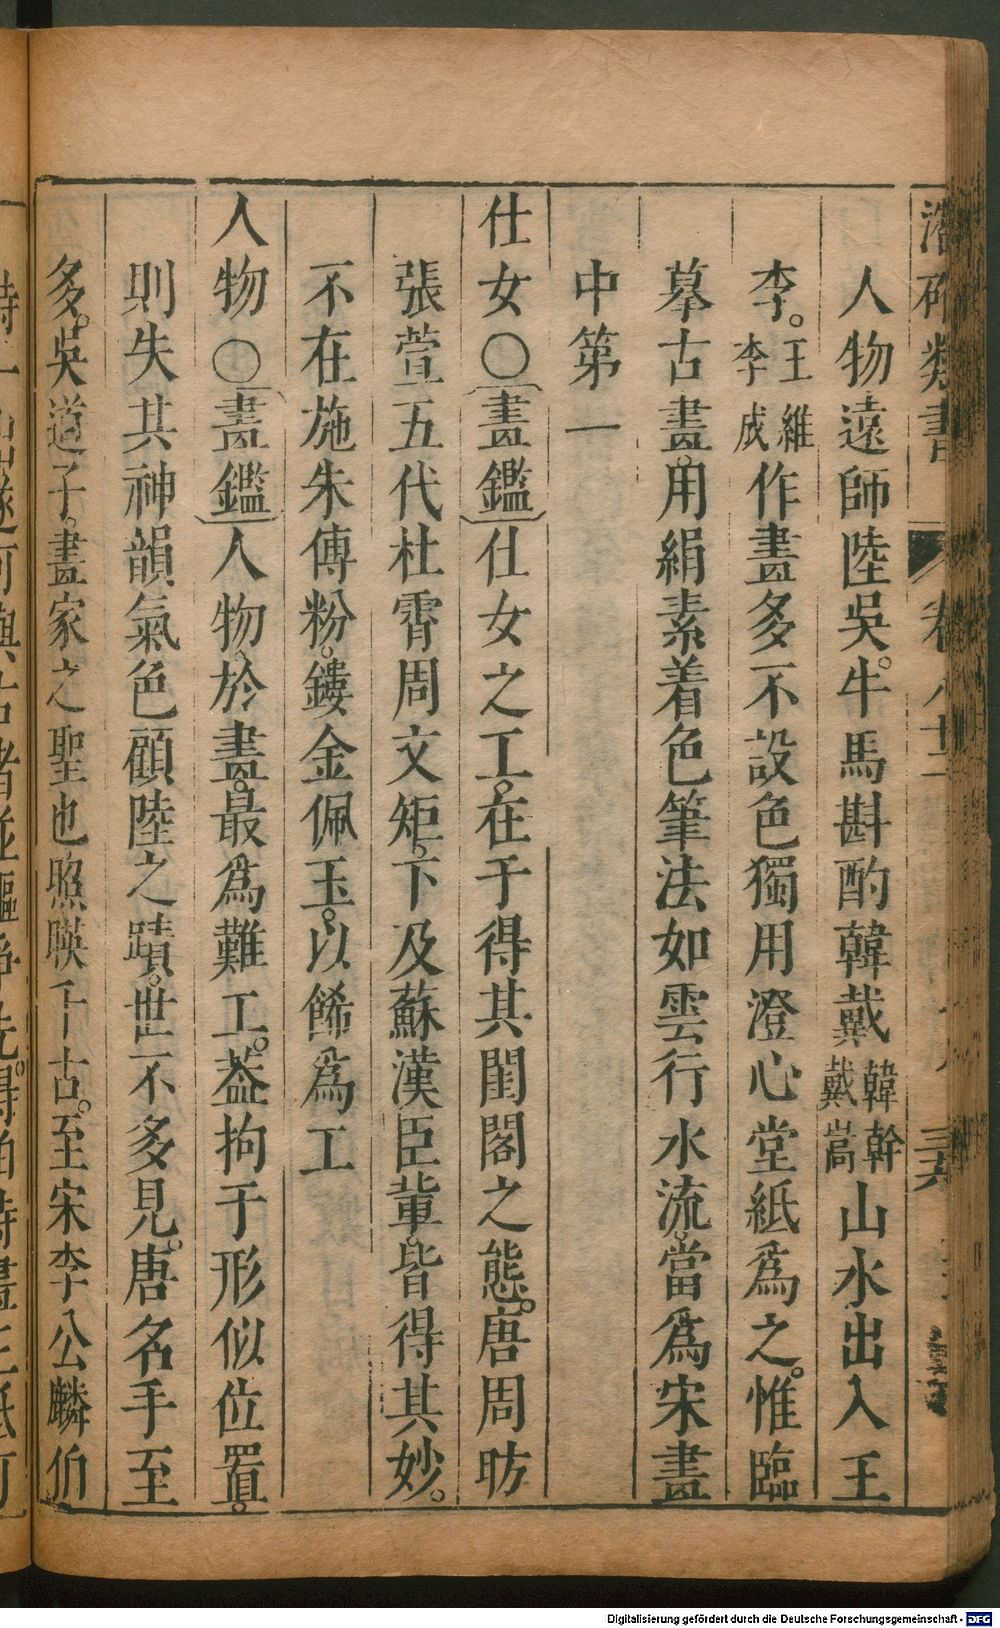 潛確類書 卷八十二
人物遠師陸吳。牛馬斟酌韓戴韓幹戴嵩山水出入王
李。王維李成作畫多不設色獨用澄心堂紙爲之。惟臨
摹古畫。用絹素着色筆法如雲行水流。當爲宋畫
中第一
仕女〇畫鑑仕女之工。在于得其閨閣之態。唐周昉
張萱五代杜霄周文矩。下及蘇漢臣輩。皆得其妙。
不在施朱傅粉。鏤金佩玉。以餙爲工
人物〇畫鑑人物於畫。最爲難工。葢拘于形似位置。
則失其神韻氣色顧陸之蹟。世不多見。唐名手至
多。吳道子。畫家之聖也照暎千古。至宋李公麟伯
Digitalisierung gefördert durch die Deutsche Forschungsgemeinschaft - DFG